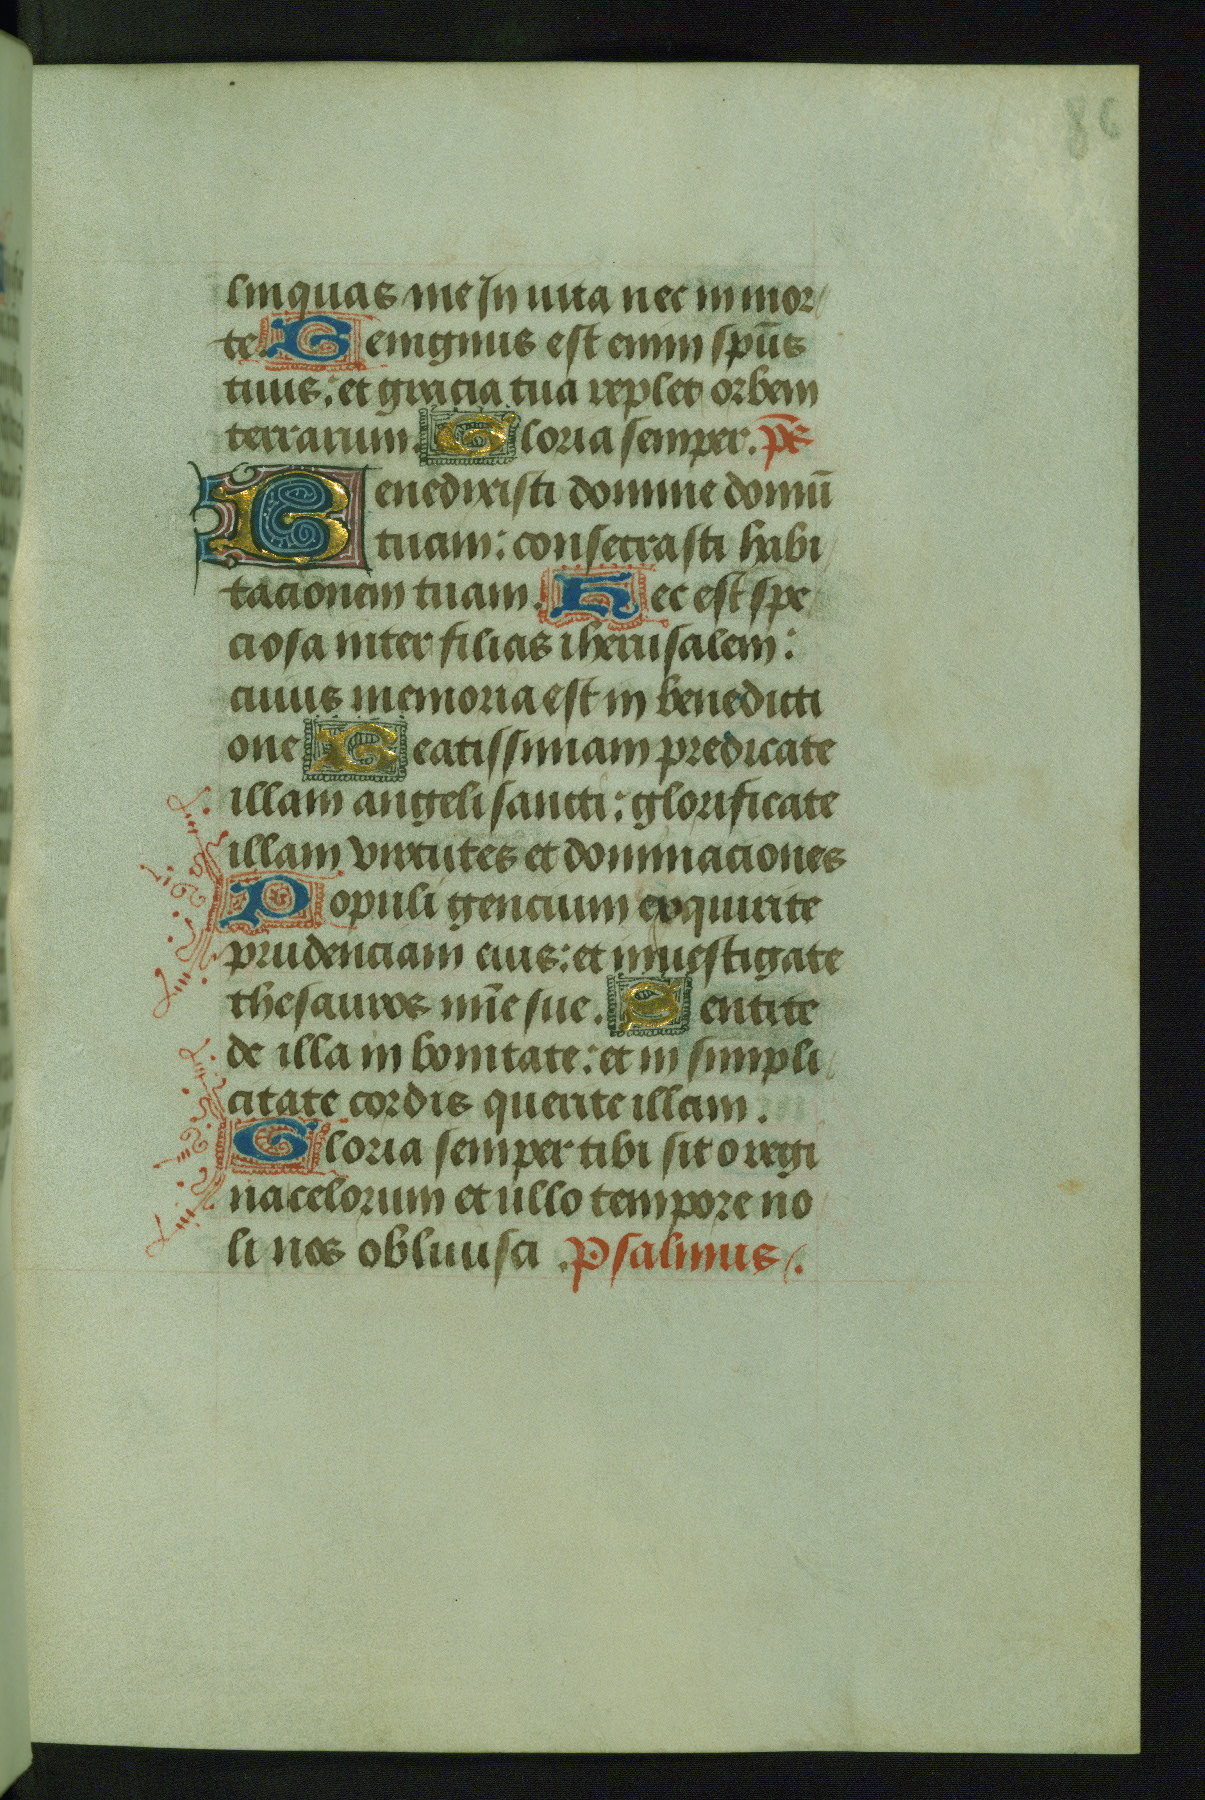 86
linquas me In uita nec in mor
te. Benignus est enim spūs
tuus: et gracia tua replet orbem
terrarum. Gloria semper. ps̄
Benedixisti domine domū
tuam: consecrasti habi
tacionem tuam. Hec est spe
ciosa inter filias iherusalem:
cuius memoria est in benedicti
one Beatissimam predicate
illam angeli sancti: glorificate
illam virtutes et dominaciones
Populi gencium exquirite
prudenciam eius: et inuestigate
thesauros mīe sue. Sentite
de illa in bonitate: et in simpli
citate cordis querite illam.
Gloria semper tibi sit o regi
na celorum et ullo tempore no
li nos obliuisci. Psalmus.